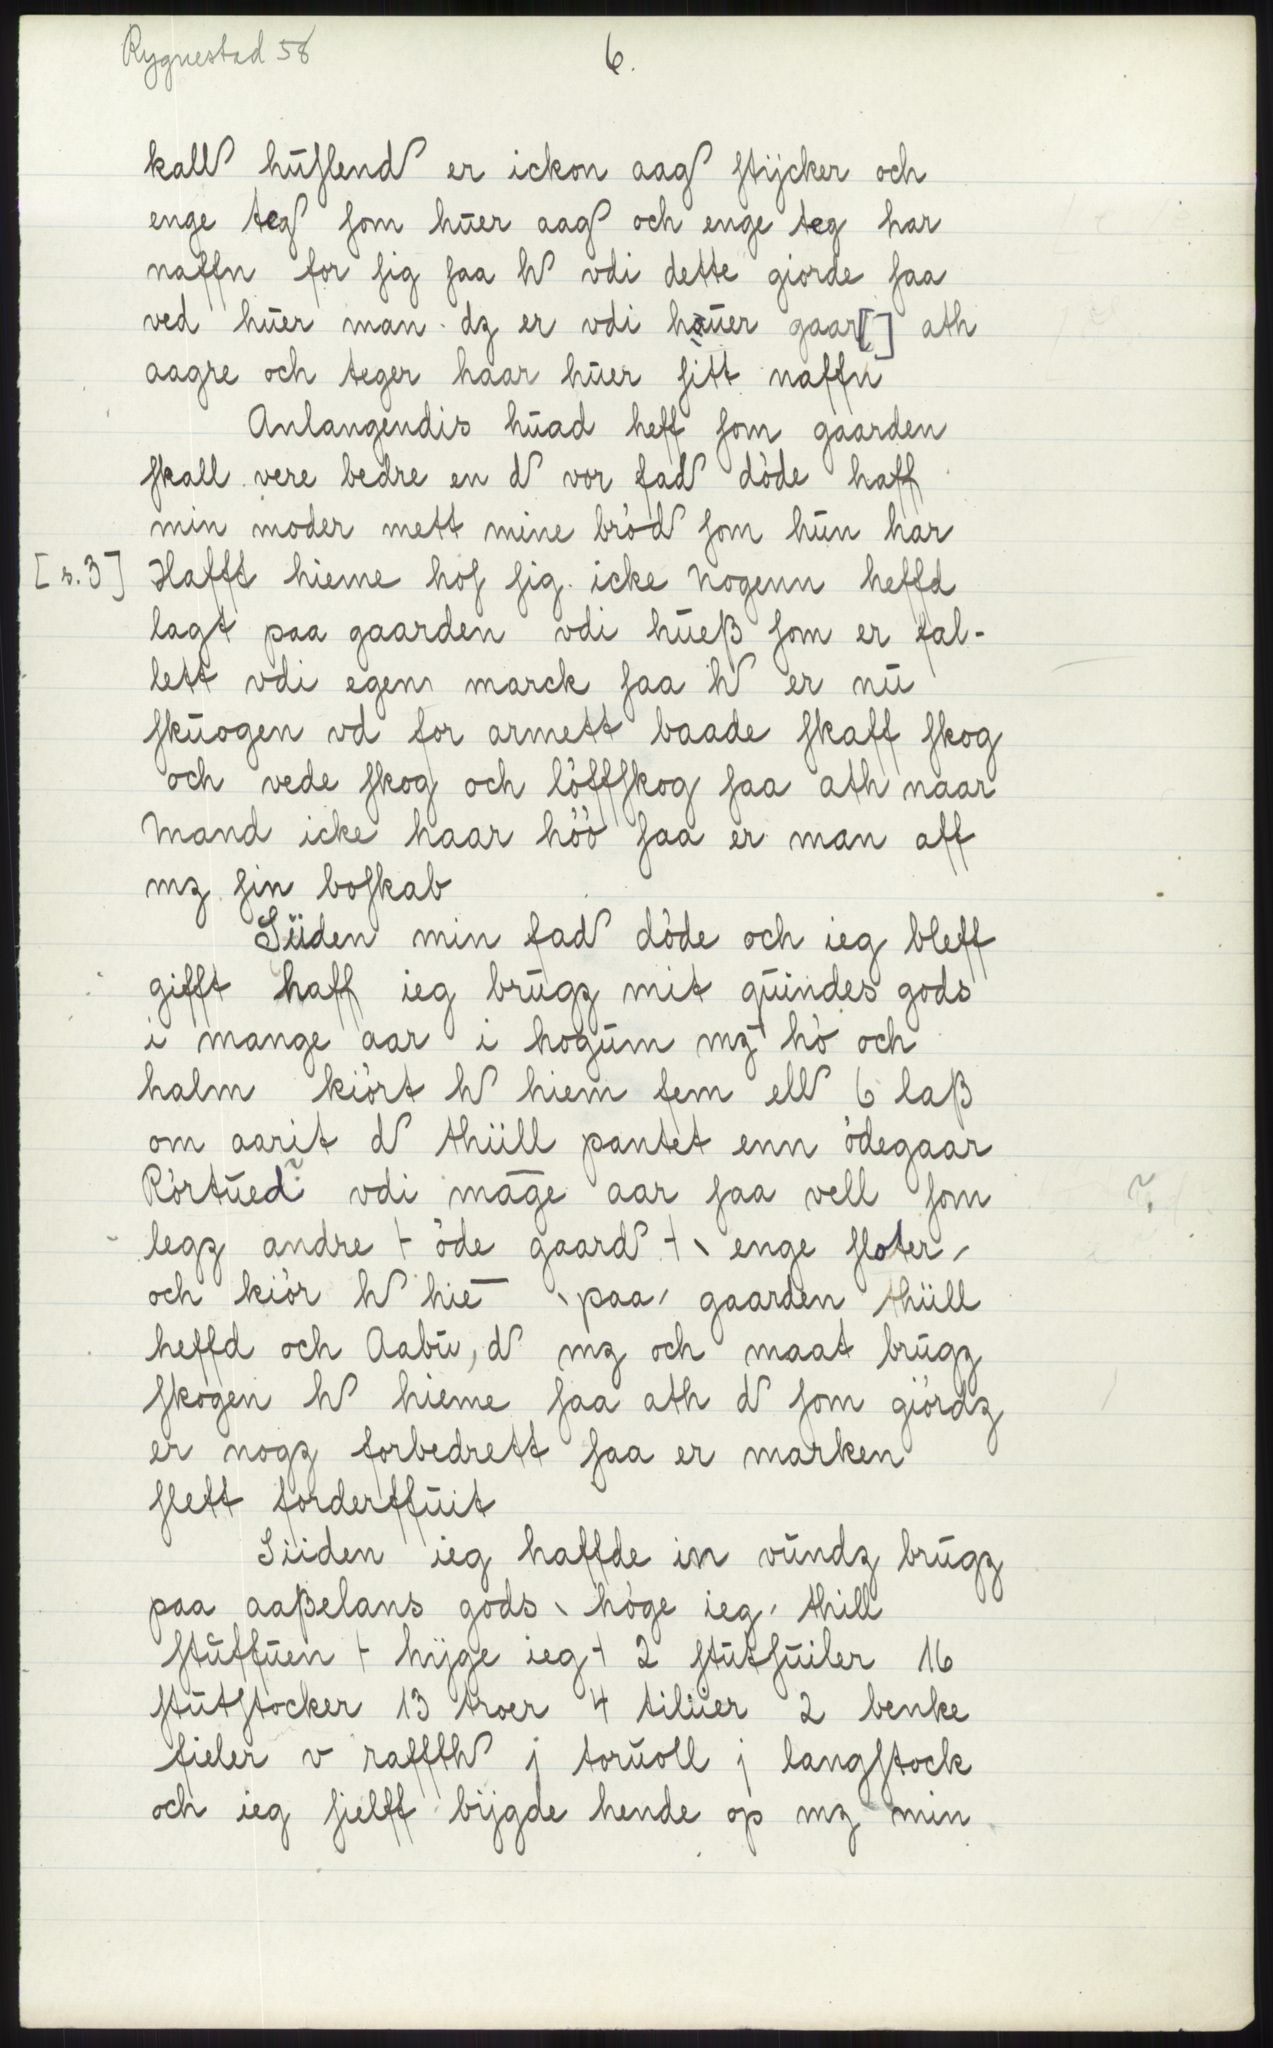 Rygnestad 58
6.
kall huslend er ickon aag stÿcker och
enge teg som hŭer aag och enge teg har
naffn for sig saa h vdi dette giorde saa
ved hŭer man dz er vdi haŭer gaar[] ath
aagre och teger haar hŭer sitt naffn
Anlangendis hŭad heff som gaarden
skall vere bedre en d vor fad döde haff
min moder mett mine bröd som hŭn har
[s.3] Hafft hieme hos sig icke Nogenn heffd
lagt paa gaarden vdi hŭeß som er fal-
lett vdi egen marck saa h er nŭ
skŭogen vd for armett baade skaff skog
och vede skog och löffskog saa ath naar
Mand icke haar höö saa er man aff
mz sin boskab
Siiden min fad döde och ieg bleff
gifft haff ieg brŭgz mit qŭindes gods
i mange aar i hogŭm mz hö och
halm kiört h hiem fem ell 6 laß
om aarit d thiill pantet enn ödegaar
Rörtŭed vdi māge aar saa vell som
legz andre ⊢ öde gaard ⊣ \ enge sloter /
och kiör h hiē \ paa / gaarden thiill
heffd och Aabŭ, d mz och maat brŭgz
skogen h hieme saa ath d som giördz
er nogz forbedrett saa er marken
slett forderffuit
Siiden ieg haffde in vŭndz brŭgz
paa aaßelans gods \ höge ieg / thill
stŭffŭen ⊢ hÿge ieg ⊣ 2 stŭtsŭiler 16
stŭtstocker 13 troer 4 tiliier 2 benke
fieler v raffth j torŭoll j langstock
och ieg sielff bÿgde hende op mz min